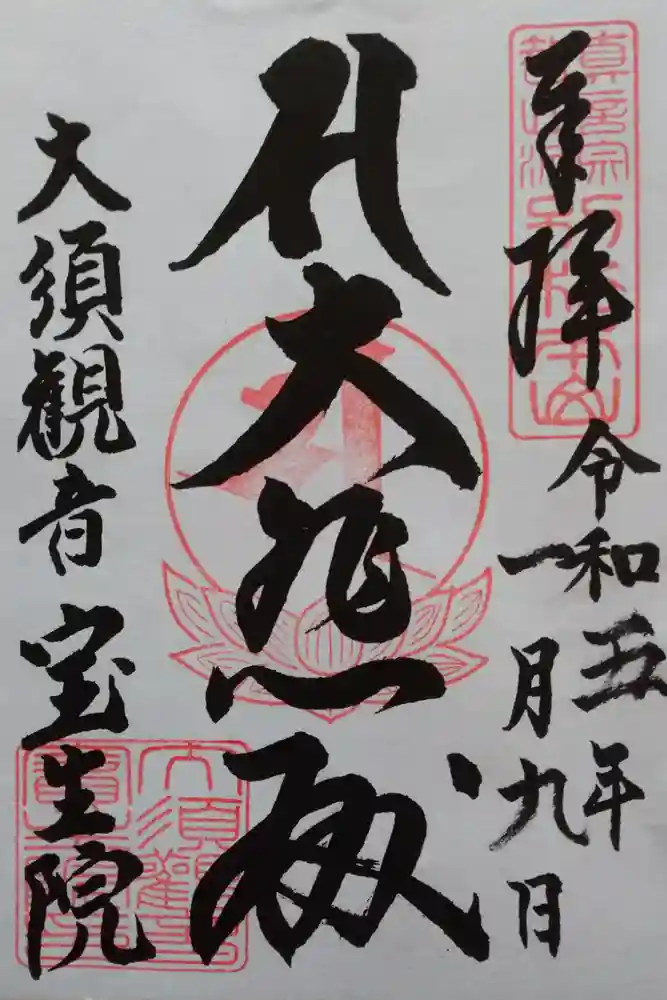 奉拝
令和五年
一月九日
大悲殿
大須観音 宝生院
真言宗
智山派
別格本山
大須觀音
寶生院